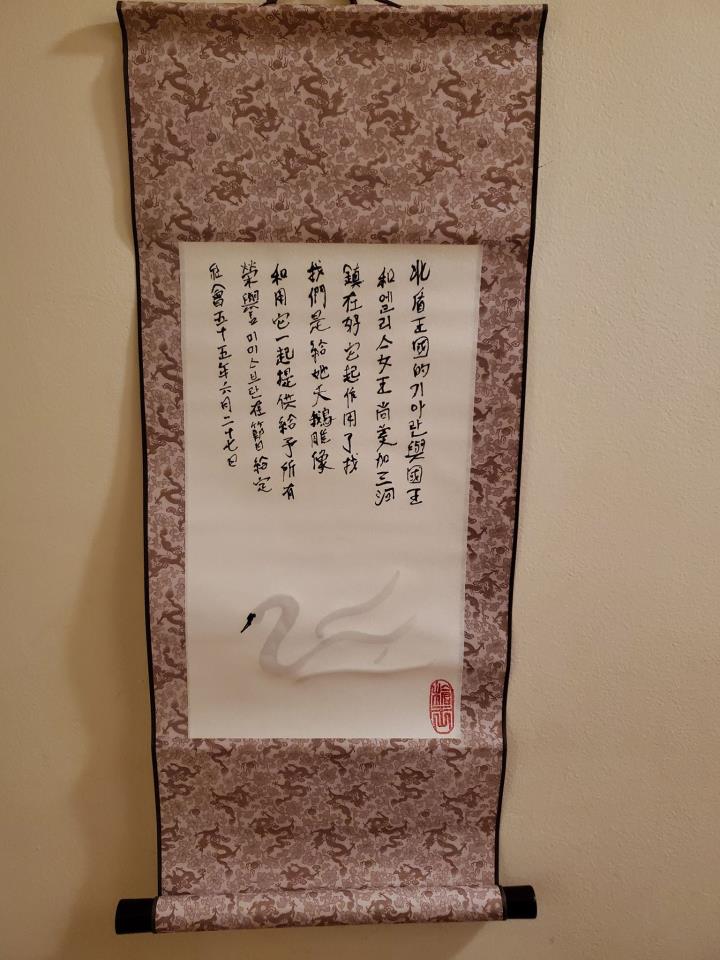 北盾王國的기아란與國王
和엘리스女王尚加三河
鎮在好它起作用了找
我們是給她天鵝雕像
和用它一起提供給予所有
榮譽미미스브란在節日給定
社會五十五年六月二十七日